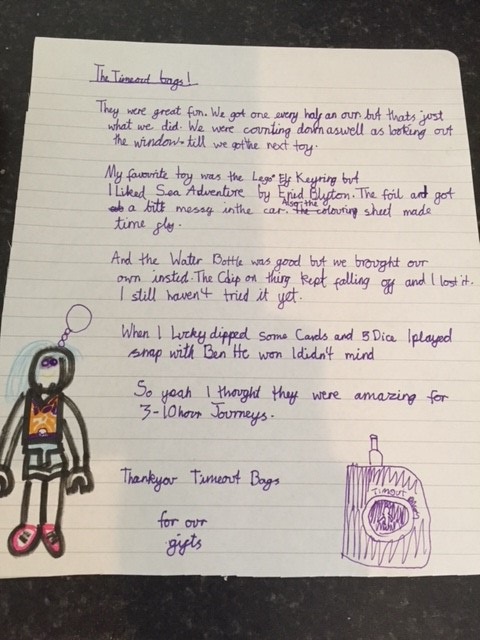 The Timeout bags!
They were great fun. We got one every half an our but thats just
what we did. We were counting down aswell as looking out
the window till we got the next toy.
My favourite toy was the Lego Elf Keyring but
I Liked Sea Adventure by Enid Blyton. The foil and got
a bitt messy in the car. Also the colouring sheet made
time fly.
And the Water Bottle was good but we brought our
own insted. The Clip on thing kept falling off and I lost it.
I still haven't tried it yet.
When I Lucky dipped some Cards and 5 Dice I played
snap with Ben He won I didn't mind
So yeah I thought they were amazing for
3-10 hour Journeys.
Thankyou Timeout Bags
for our
gifts
TIMOUT